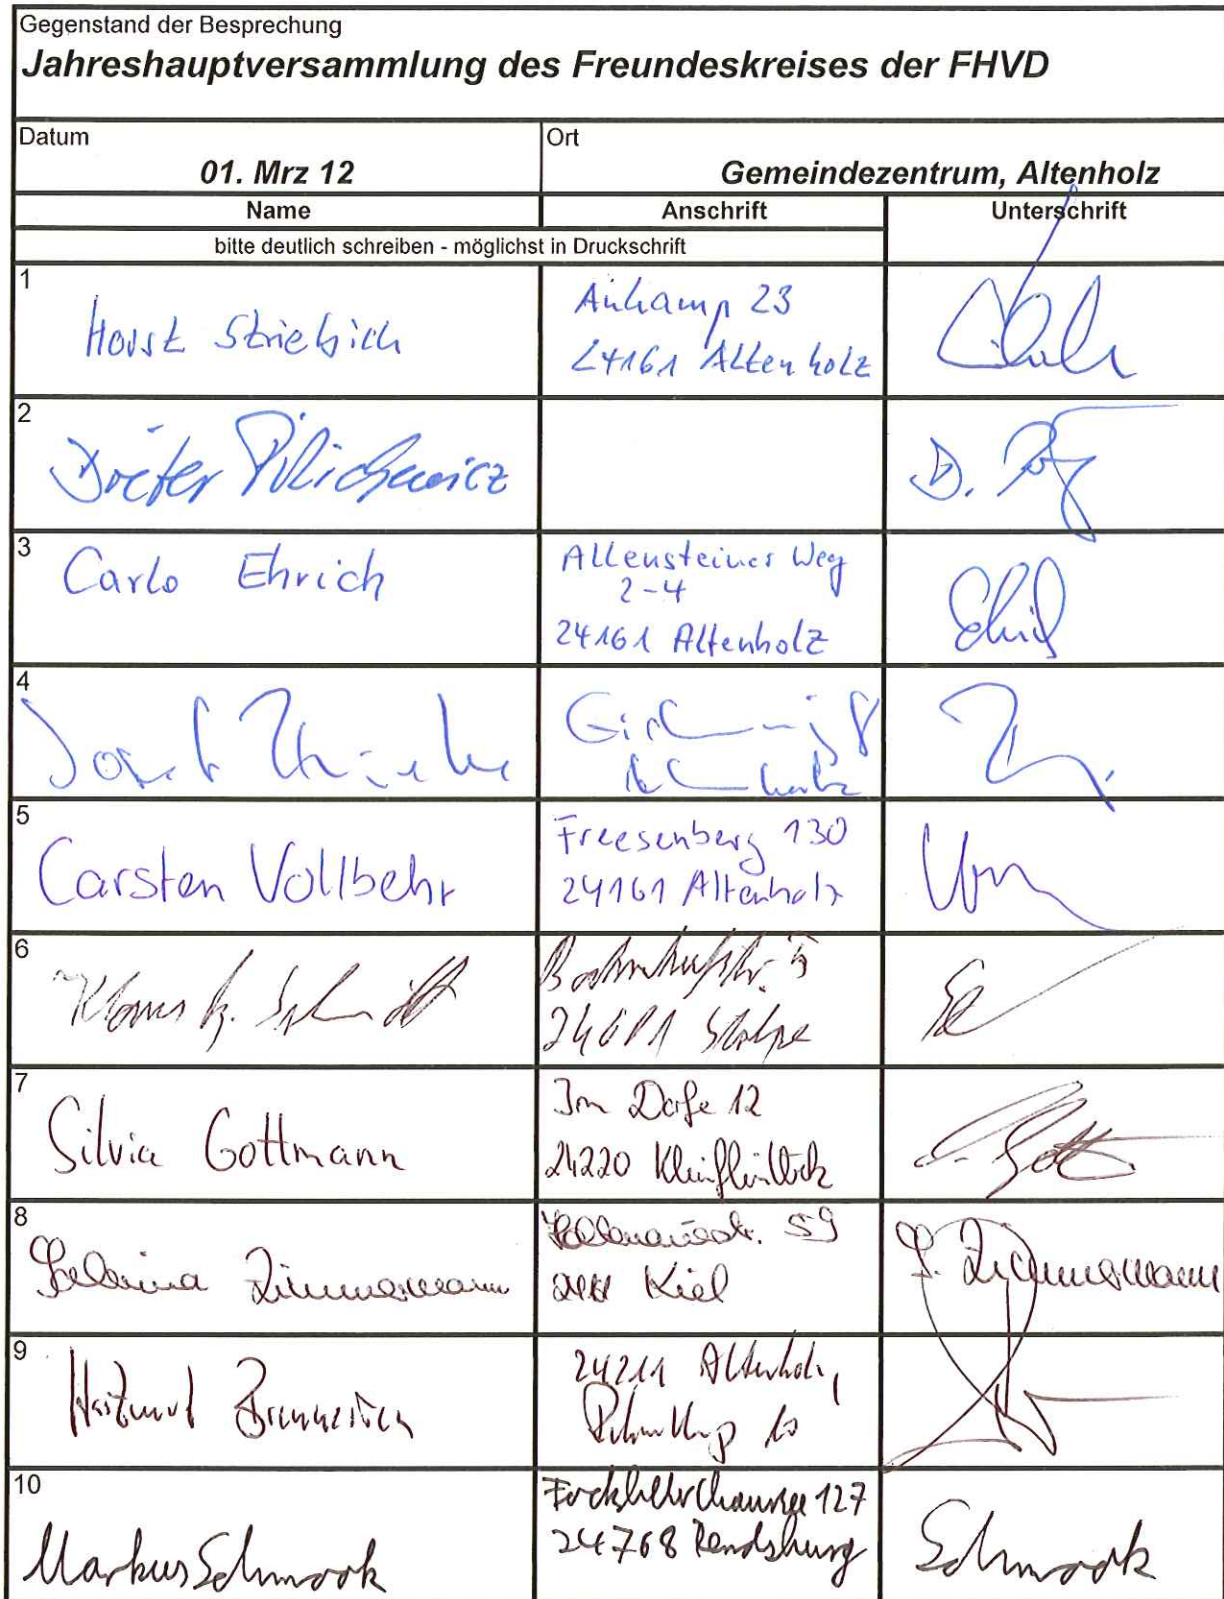 Gegenstand der Besprechung
Jahreshauptversammlung des Freundeskreises der FHVD
Datum
Ort
01. Mrz 12
Gemeindezentrum, Altenholz
Name
Anschrift
Unterschrift
bitte deutlich schreiben - möglichst in Druckschrift
1
Horst Striebich
Ankamp 23
24161 Altenholz
2
Dieter Pilichewicz
D.
3
Carlo Ehrich
Allensteiner Weg
2-4
24161 Altenholz
Ehrich
4
Josef
5
Carsten Vollbehr
Freesenberg 130
24161 Altenholz
6
Klaus h. Schmidt
Bahnhofstr. 5
24601 Stolpe
7
Silvia Gottmann
Im Dorfe 12
24220 Kleinflintbek
8
Zimmermann
59
Kiel
Zimmermann
9
Hartmut
24211 Altenholz,
10
10
Markus Schmook
Fockbeker Chaussee 127
24768 Rendsburg
Schmook